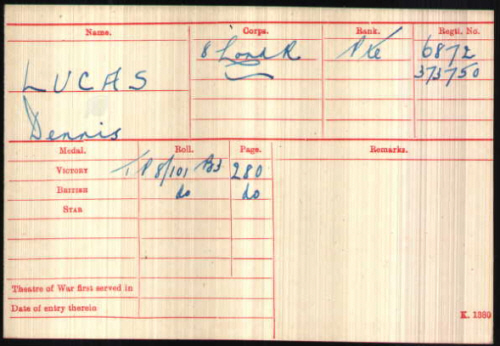 Name. Corps. Rank. Regtl. No.
LUCAS 8 Lond R Pte 6872
373750
Dennis
Medal. Roll. Page. Remarks.
VICTORY TP 8/101 B3 280
BRITISH do do
STAR
Theatre of War first served in
Date of entry therein
K. 1380